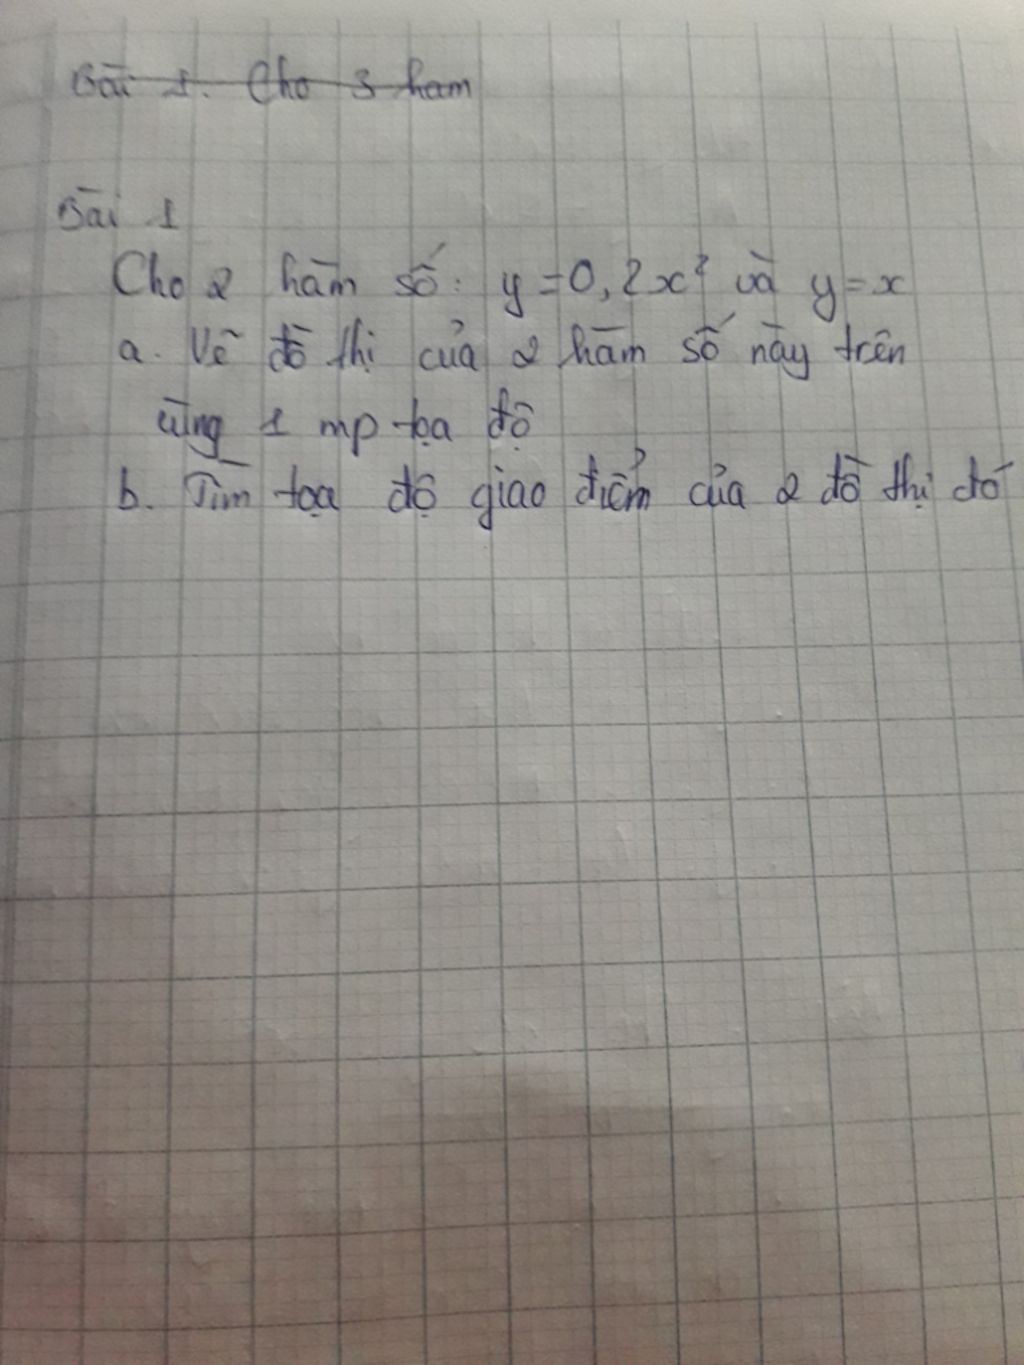 Bài 1. Cho 3 ham
Bài 1
Cho 2 hàm số: y=0,2x² và y=x
a. Vẽ đồ thị của 2 hàm số này trên
cùng 1 mp tọa độ
b. Tìm toạ độ giao điểm của 2 đồ thị đó